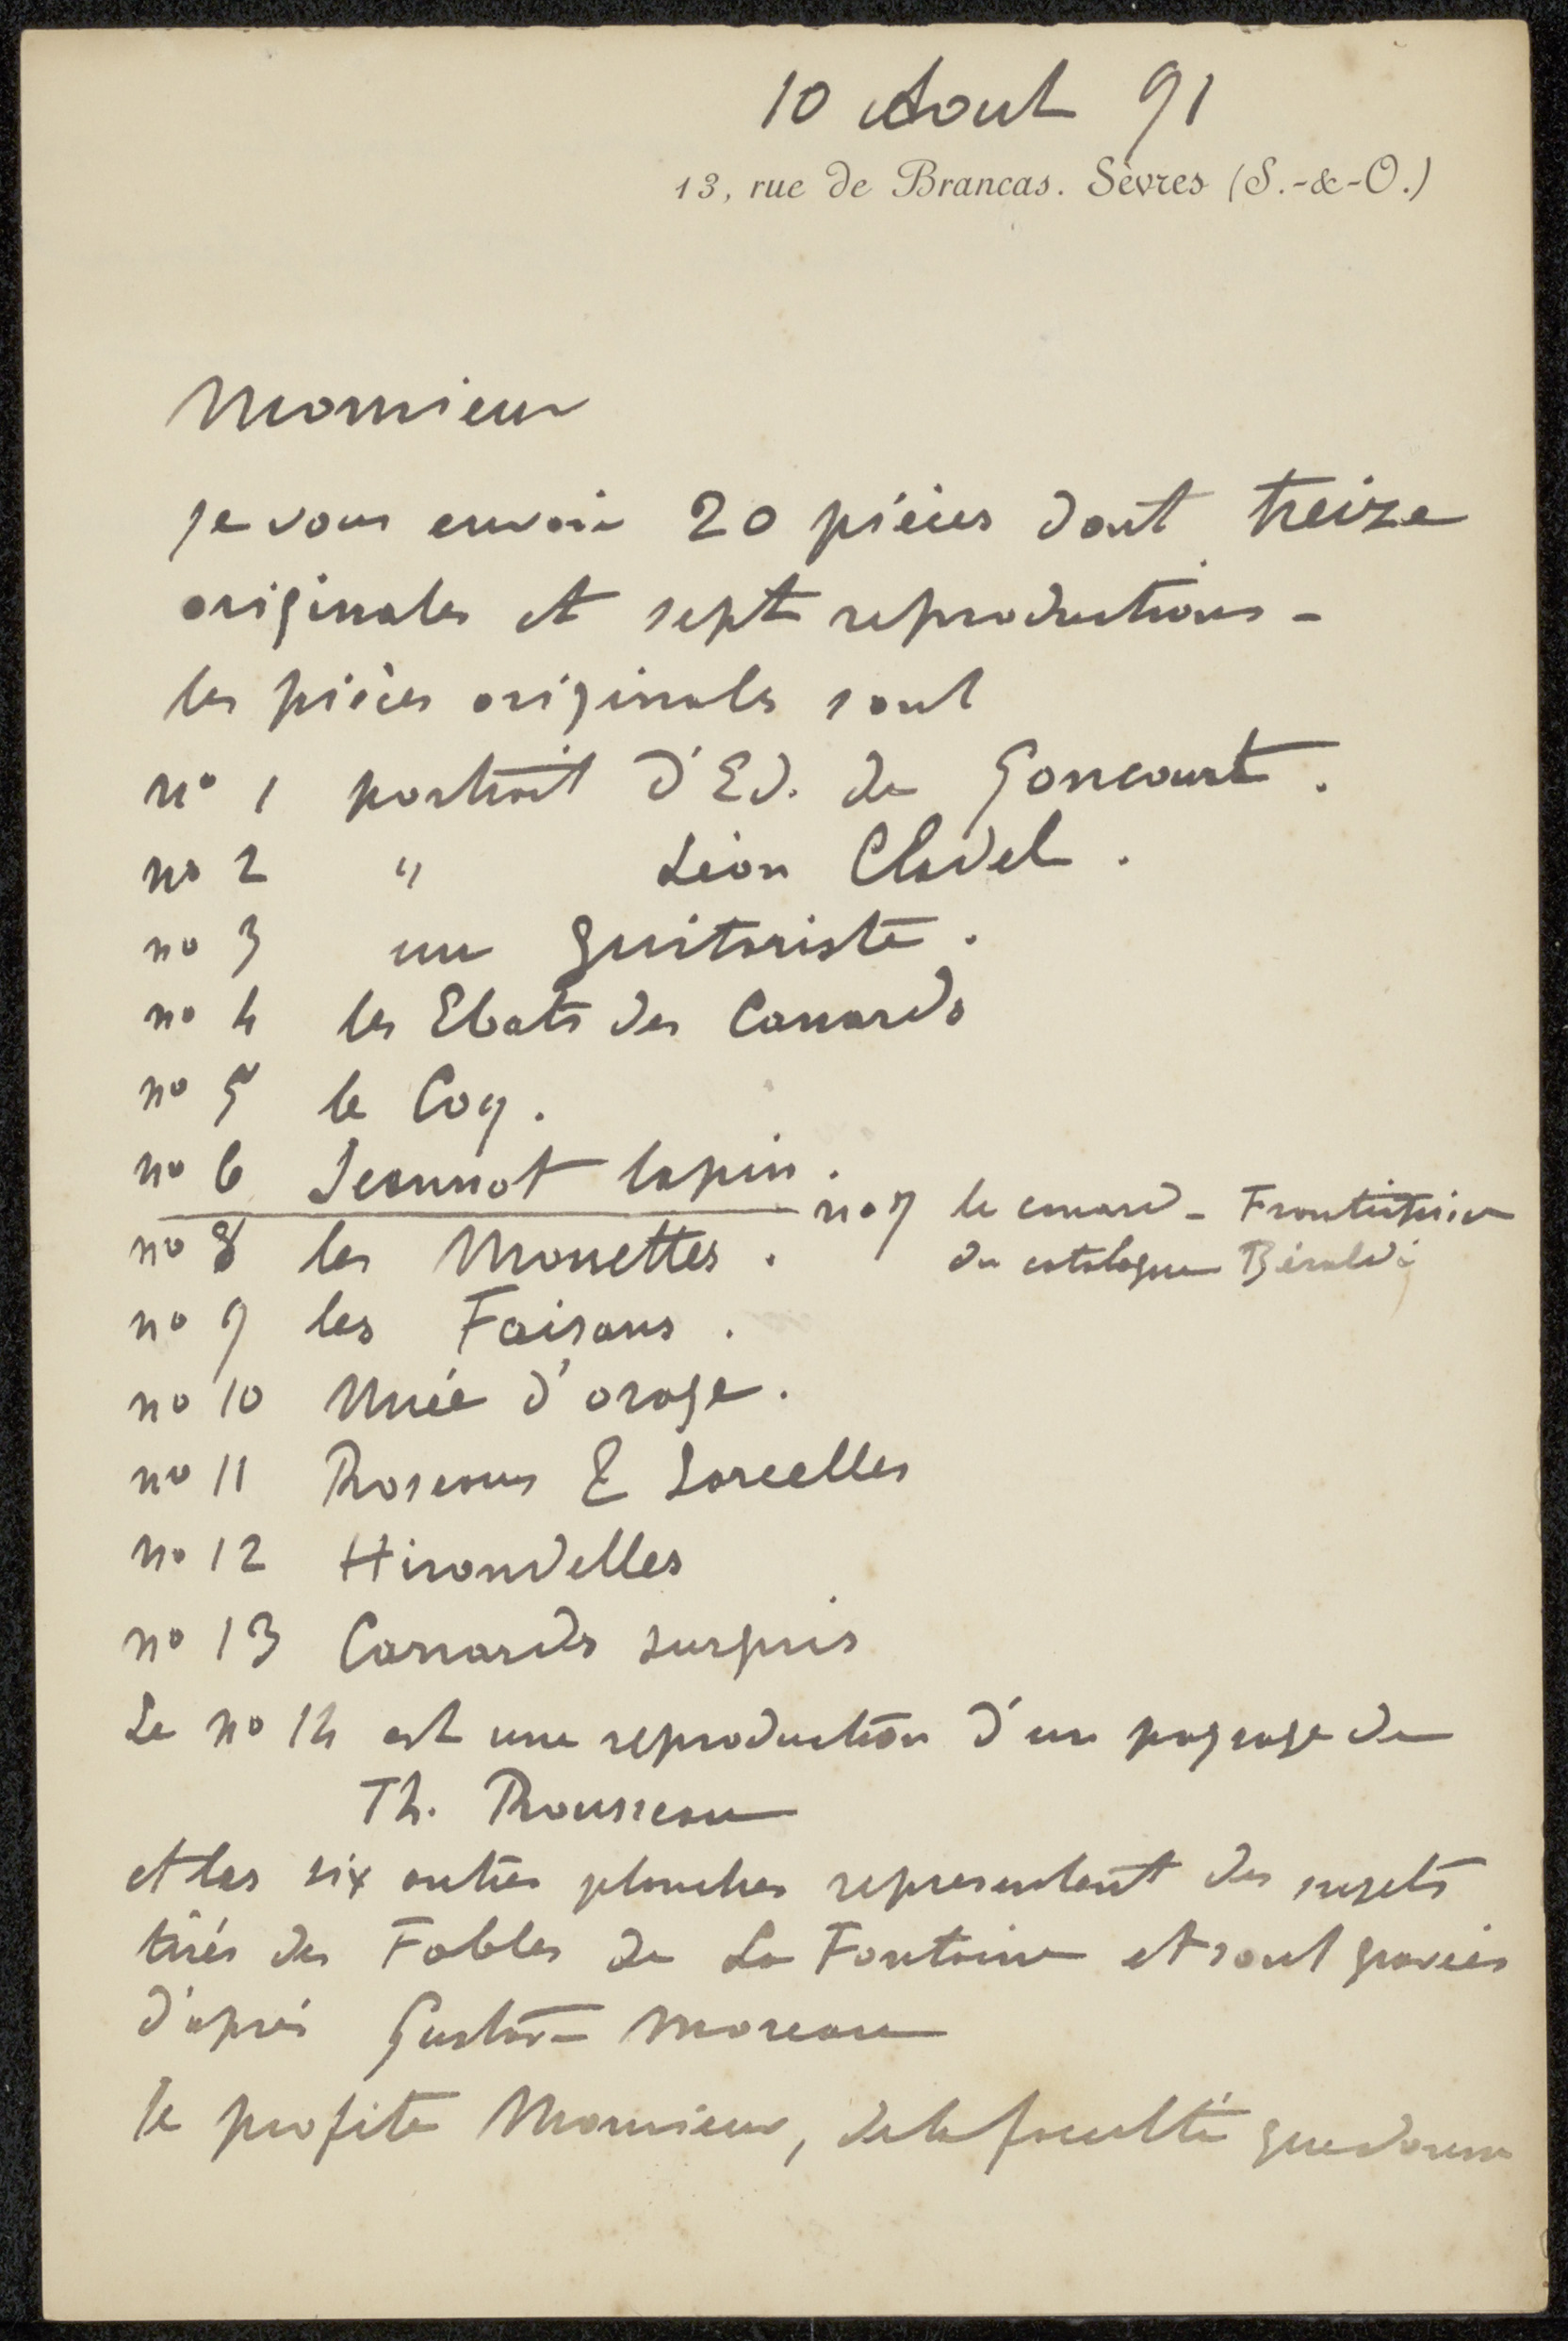 10 Aout 91
13, rue de Brancas. Sèvres (S.-&-O.)
Monsieur
je vous envoie 20 pièces dont treize
originales et sept reproductions -
les pièces originales sont
no 1 portrait d'Ed. de Goncourt.
no 2 " Léon Cladel.
no 3 un guitariste.
no 4 les Ebats des Canards
no 5 le Coq.
no 6 Jeannot lapin.
no 7 le canard - Frontispice
du catalogue Béraldi
no 8 les Mouettes.
no 9 les Faisans.
no 10 Nuée d'orage.
no 11 Roseaux & Sarcelles
no 12 Hirondelles
no 13 Canards surpris
Le no 14 est une reproduction d'un paysage de
Th. Rousseau
et les six autres planches representent des sujets
tirés des Fables de La Fontaine et sont gravées
d'après Gustave Moreau
Je profite Monsieur, de la faculté que donne